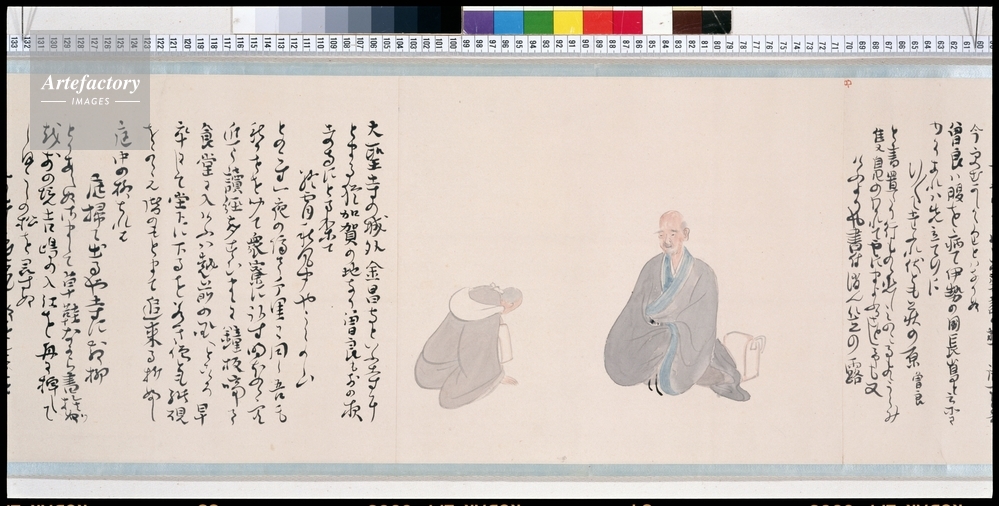 曽良は腹を病て伊勢の国長嶋と云所に
ゆかりあれは先立て行に
行々てたふれ伏とも萩の原 曽良
と書置たり行ものゝ悲しみ残るものゝうらみ
隻鳧のわかれて雲にまよふかことし予も又
けふよりや書付消さん笠の露
大聖寺の城外全昌寺といふ寺に
とまる猶加賀の地なり曽良も前の夜
此寺にとまりて
終宵秋風聞やうらの山
と残す一夜の隔千里に同し吾も
秋風を聞て衆寮に臥は明ほのゝ空
近う読経声すむまゝに鐘板鳴て
食堂に入けふは越前の国へと心早
卒にして堂下に下るを若き僧とも紙硯
をかゝえ階のもとまて追来る折節
庭中の柳ちれは
庭掃て出るや寺にちる柳
とりあへぬさまして草鞋なから書捨
越前の境吉崎の入江を舟に棹して
汐こしの松を尋ぬ
Artefactory
IMAGES